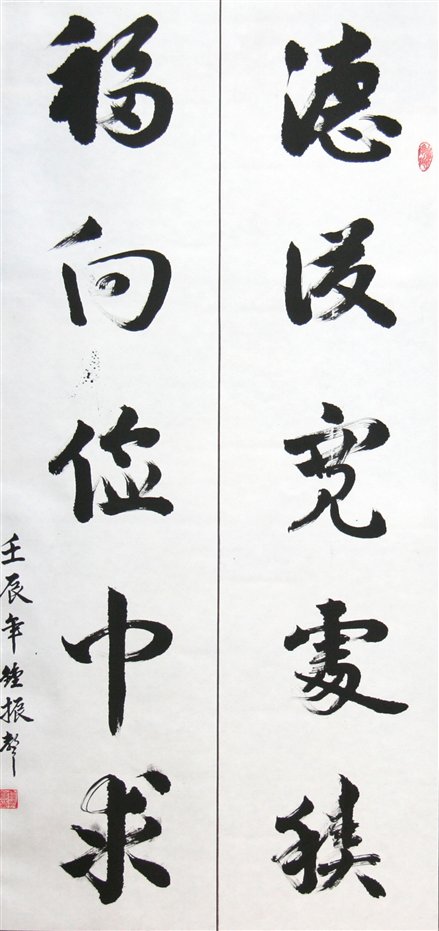 德從寬處積
福向儉中求
壬辰年鍾振聲